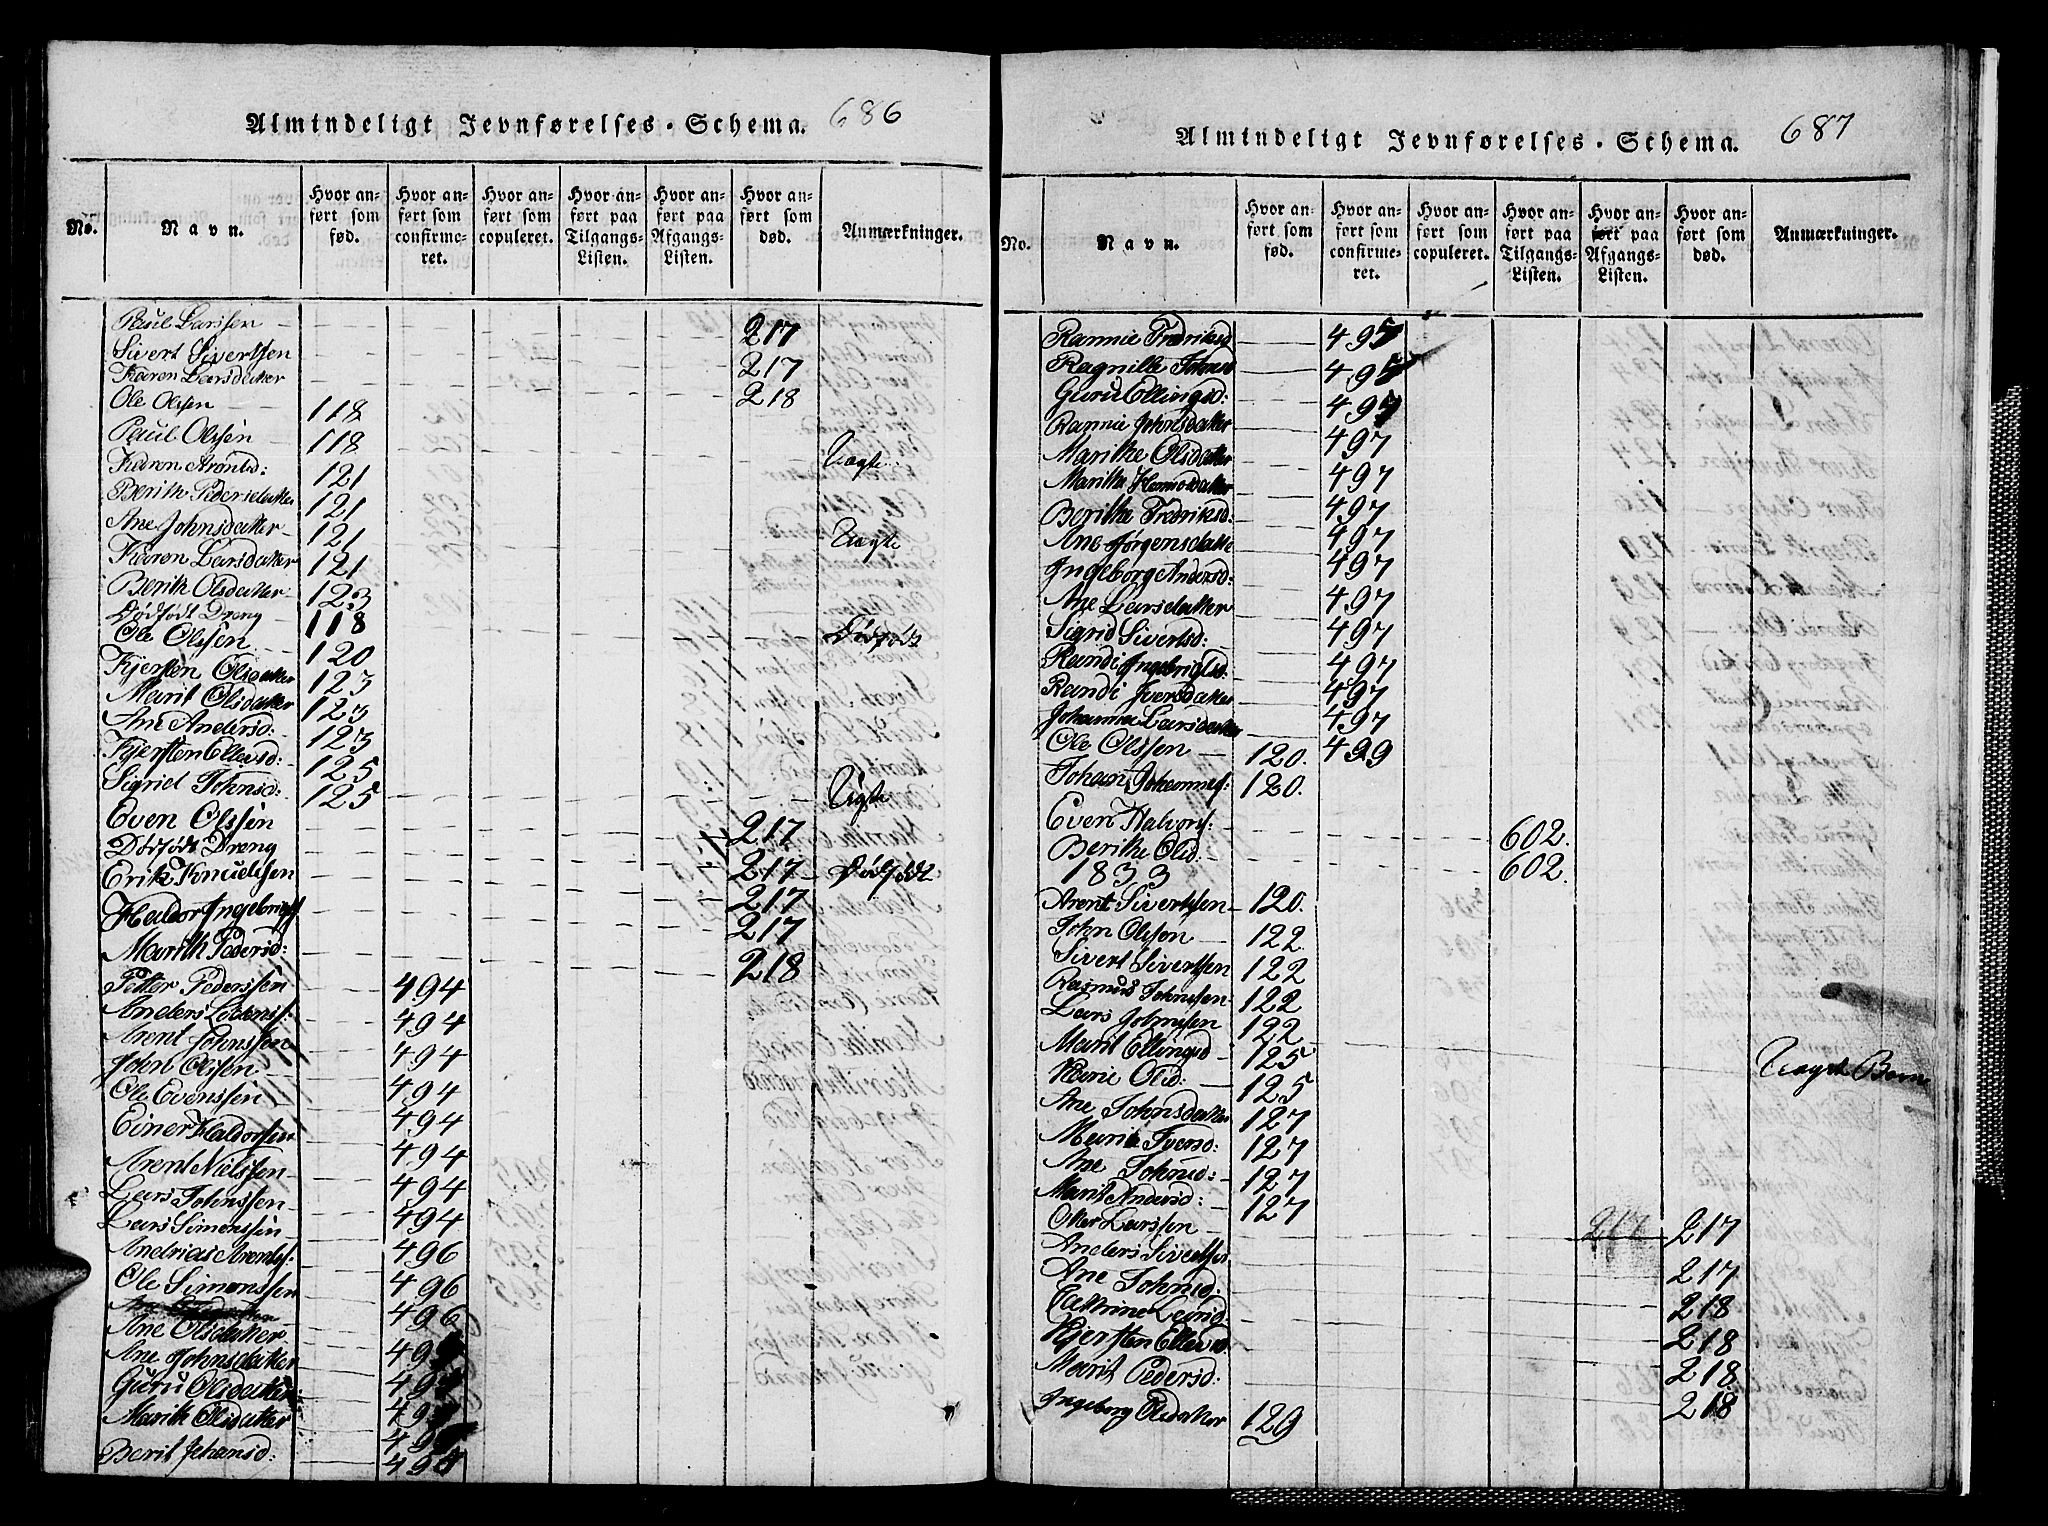 Almindeligt Jevnførelses-Schema. 686
No. Navn. Hvor anført som fød. Hvor anført som confirmeret. Hvor anført som copuleret. Hvor anført paa Tilgangs-Listen. Hvor anført paa Afgangs-Listen. Hvor anført som død. Anmærkninger.
Paul Larssen 217
Sivert Sivertsen 217
Karen Larsdatter 218
Ole Olssen 118
Paul Olssen 118
Karen Arontsd: 121 Uægte
Berith Pedersdatter 121
Ane Johnsdatter 121 Uægte
Karen Larsdatter 121
Berith Olsdatter 123
Dødfødt Dreng 118 Dødfødt
Ole Olssen 120
Kjersten Olsdatter 123
Marit Olsdatter 123
Ane Andersd: 123
Kjersten Ellevsd: 125
Sigrid Johnsd: 125 Uægte
Even Olssen 217
Dødfødt Dreng 217 Dødfødt
Erik Knuelssen 217
Haldor Ingebrigts 217
Marith Pedersd: 218
Petter Pederssen 494
Anders 494
Arent Johnssen 494
John Olssen 494
Ole Evenssen 494
Einer Haldorsen 494
Arent Nielssen 494
Lars Johnssen 494
Lars Simonssen 496
Andreas Arents: 496
Ole Simonssen 496
Ane Olsdatter
Ane Johnsdatter
Guru Olsdatter
Marith Olsdatter
Berit Johansd: 495
Almindeligt Jevnførelses-Schema. 687
No. Navn. Hvor anført som fød. Hvor anført som confirmeret. Hvor anført som copuleret. Hvor anført paa Tilgangs-Listen. Hvor anført paa Afgangs-Listen. Hvor anført som død. Anmærkninger.
Rannie Fredriksd 495
Ragnille Johnsd 495
Guru Ellingsd: 497
Rannie Johnsdatter 497
Marithe Olsdatter 497
Marithe 497
Berithe Fredriksd: 497
Ane Jørgensdatte 497
Ingeborg Andersd: 497
Ane Larsdatter 497
Sigrid Sivertsd: 497
Randi Ingebrigtsd: 497
Randi Iversdatter 497
Johanna Larsdatter 499
Ole Olssen 120.
Johan Johannes: 120.
Even Halvors: 602.
Berithe Olsd: 602.
1833
Arent Sivertssen 120.
John Olssen 122
Sivert Sivertssen 122
Rasmus Johnssen 122
Lars Johnssen 122
Marit Ellingsd 125 Uægte Børn
Marie Olsd: 125
Ane Johnsdatter 127
Marith Iversd: 127
Ane Johnsd: 127
Marit Andersd: 127
Otter Larssen 217 217
Anders Sivertssen 217
Ane Johnsd: 218
Cathrine Larsd 218
Kjersten Ellevsd 218
Marit Pedersd: 218
Ingeborg Olsdatter 129